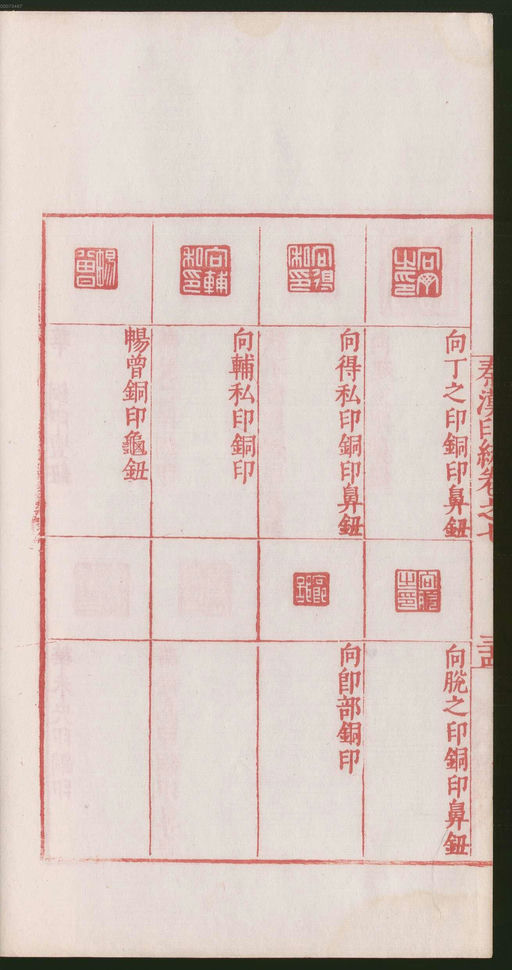 秦漢印統卷之七
向丁之印銅印鼻鈕
向得私印銅印鼻鈕
向輔私印銅印
暢曾銅印龜鈕
向脫之印銅印鼻鈕
向卽部銅印